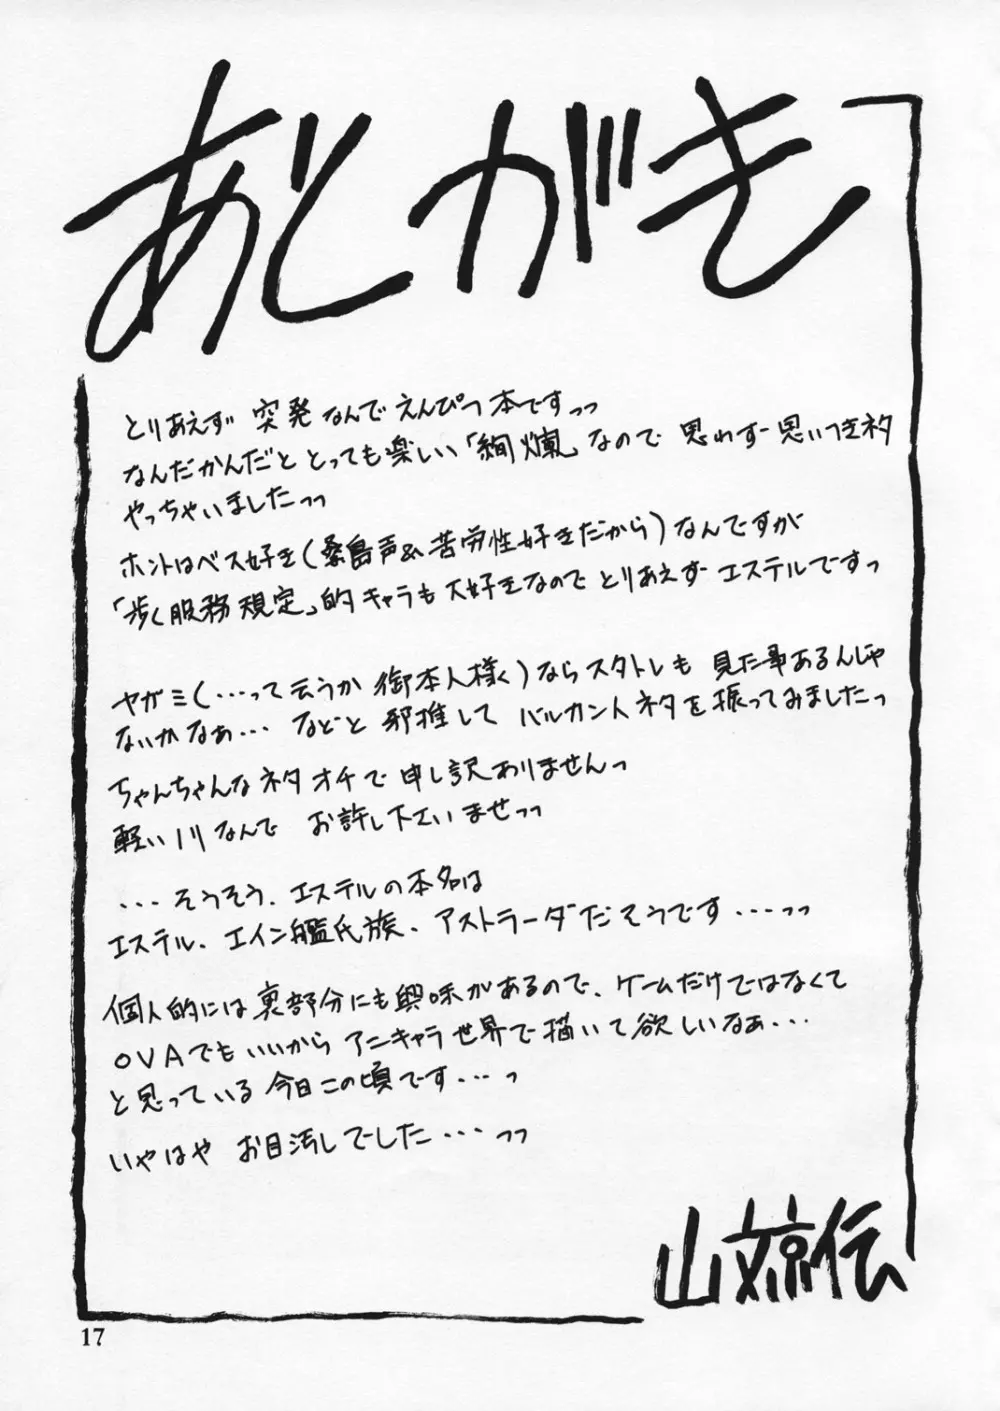 あとがき
とりあえず 突発なんでえんぴつ本ですっっ
なんだかんだと とっても楽しい「絢爛」なので 思わず 思いつきネタ
やっちゃいましたっっ
ホントはベス好き(桑島声&苦労性好きだから)なんですが
「歩く服務規定」的キャラも大好きなので とりあえず エステルですっ
ヤガミ(…って云うか 御本人様く)ならスタトレも 見た事あるんじゃ
ないかなぁ… などと 邪推して バルカン人ネタを振ってみましたっ
ちゃんちゃんなネタオチで 申し訳ありませんっ
軽いノリなんで お許し下さいませっっ
…そうそう、エステルの本名は
エステル、エイン艦氏族、アストラーダだそうです…っっ
個人的には 裏部分にも興味があるので、ゲームだけではなくて
OVAでもいいから アニキャラ世界で描いて欲しいなぁ…
と思っている 今日この頃です…っ
いやはや お目汚しでした…っっ
山文京伝
17